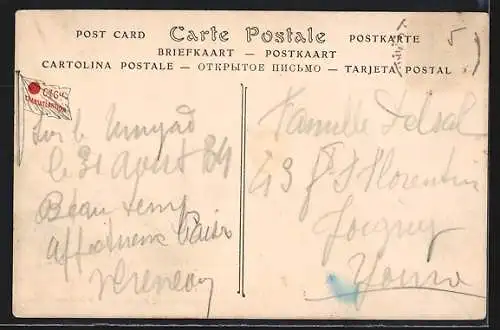 POST CARD Carte Postale POSTKARTE
BRIEFKAART — POSTKAART
CARTOLINA POSTALE — ОТКРЫТОЕ ПИСЬМО — TARJETA POSTAL
5
Cie Gle
TRANSATLANTIQUE
le 31 Aout 24
Beau temps
Affectueux Baiser
Famille
43 St Florentin
Joigny
Yonne